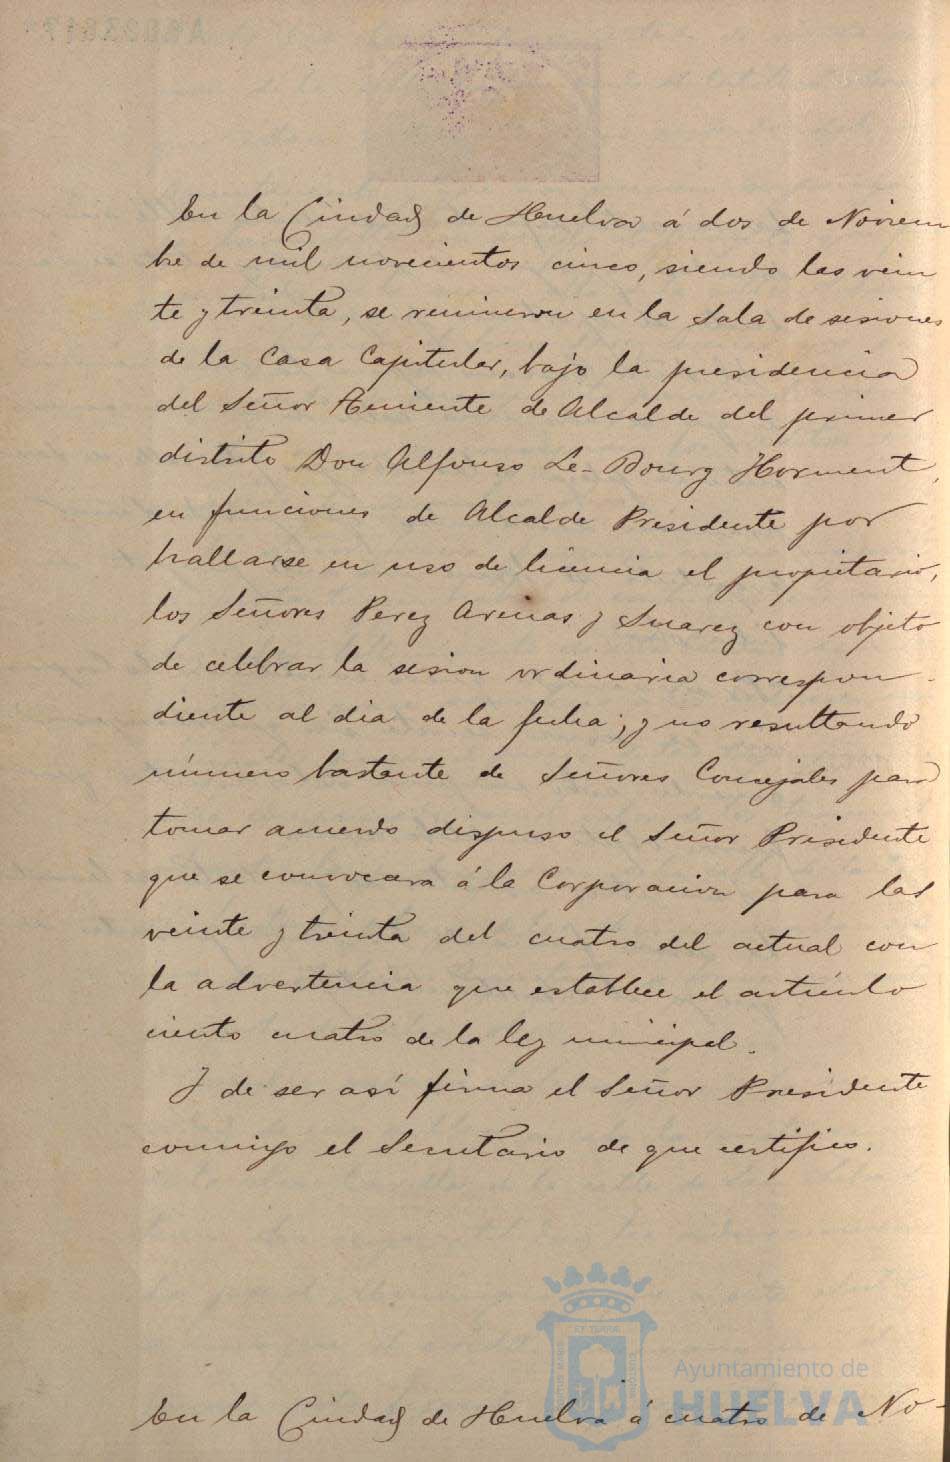 En la Ciudad de Huelva á dos de Noviem
bre de mil novecientos cinco, siendo las vein
te y treinta, se reunieron en la Sala de sesiones
de la Casa Capitular, bajo la presidencia
del Señor Teniente de Alcalde del primer
distrito Don Alfonso Le-Bourg Horment,
en funciones de Alcalde Presidente por
hallarse en uso de licencia el propietario,
los Señores Perez Arenas y Suarez con objeto
de celebrar la sesion ordinaria correspon-
diente al dia de la fecha; y no resultando
número bastante de Señores Concejales para
tomar acuerdo dispuso el Señor Presidente
que se convocara á la Corporacion para las
veinte y treinta del cuatro del actual con
la advertencia que establece el artículo
ciento cuatro de la ley municipal.
Y de ser así firma el Señor Presidente
conmigo el Secretario de que certifico.
En la Ciudad de Huelva á cuatro de No-
Ayuntamiento de
HUELVA